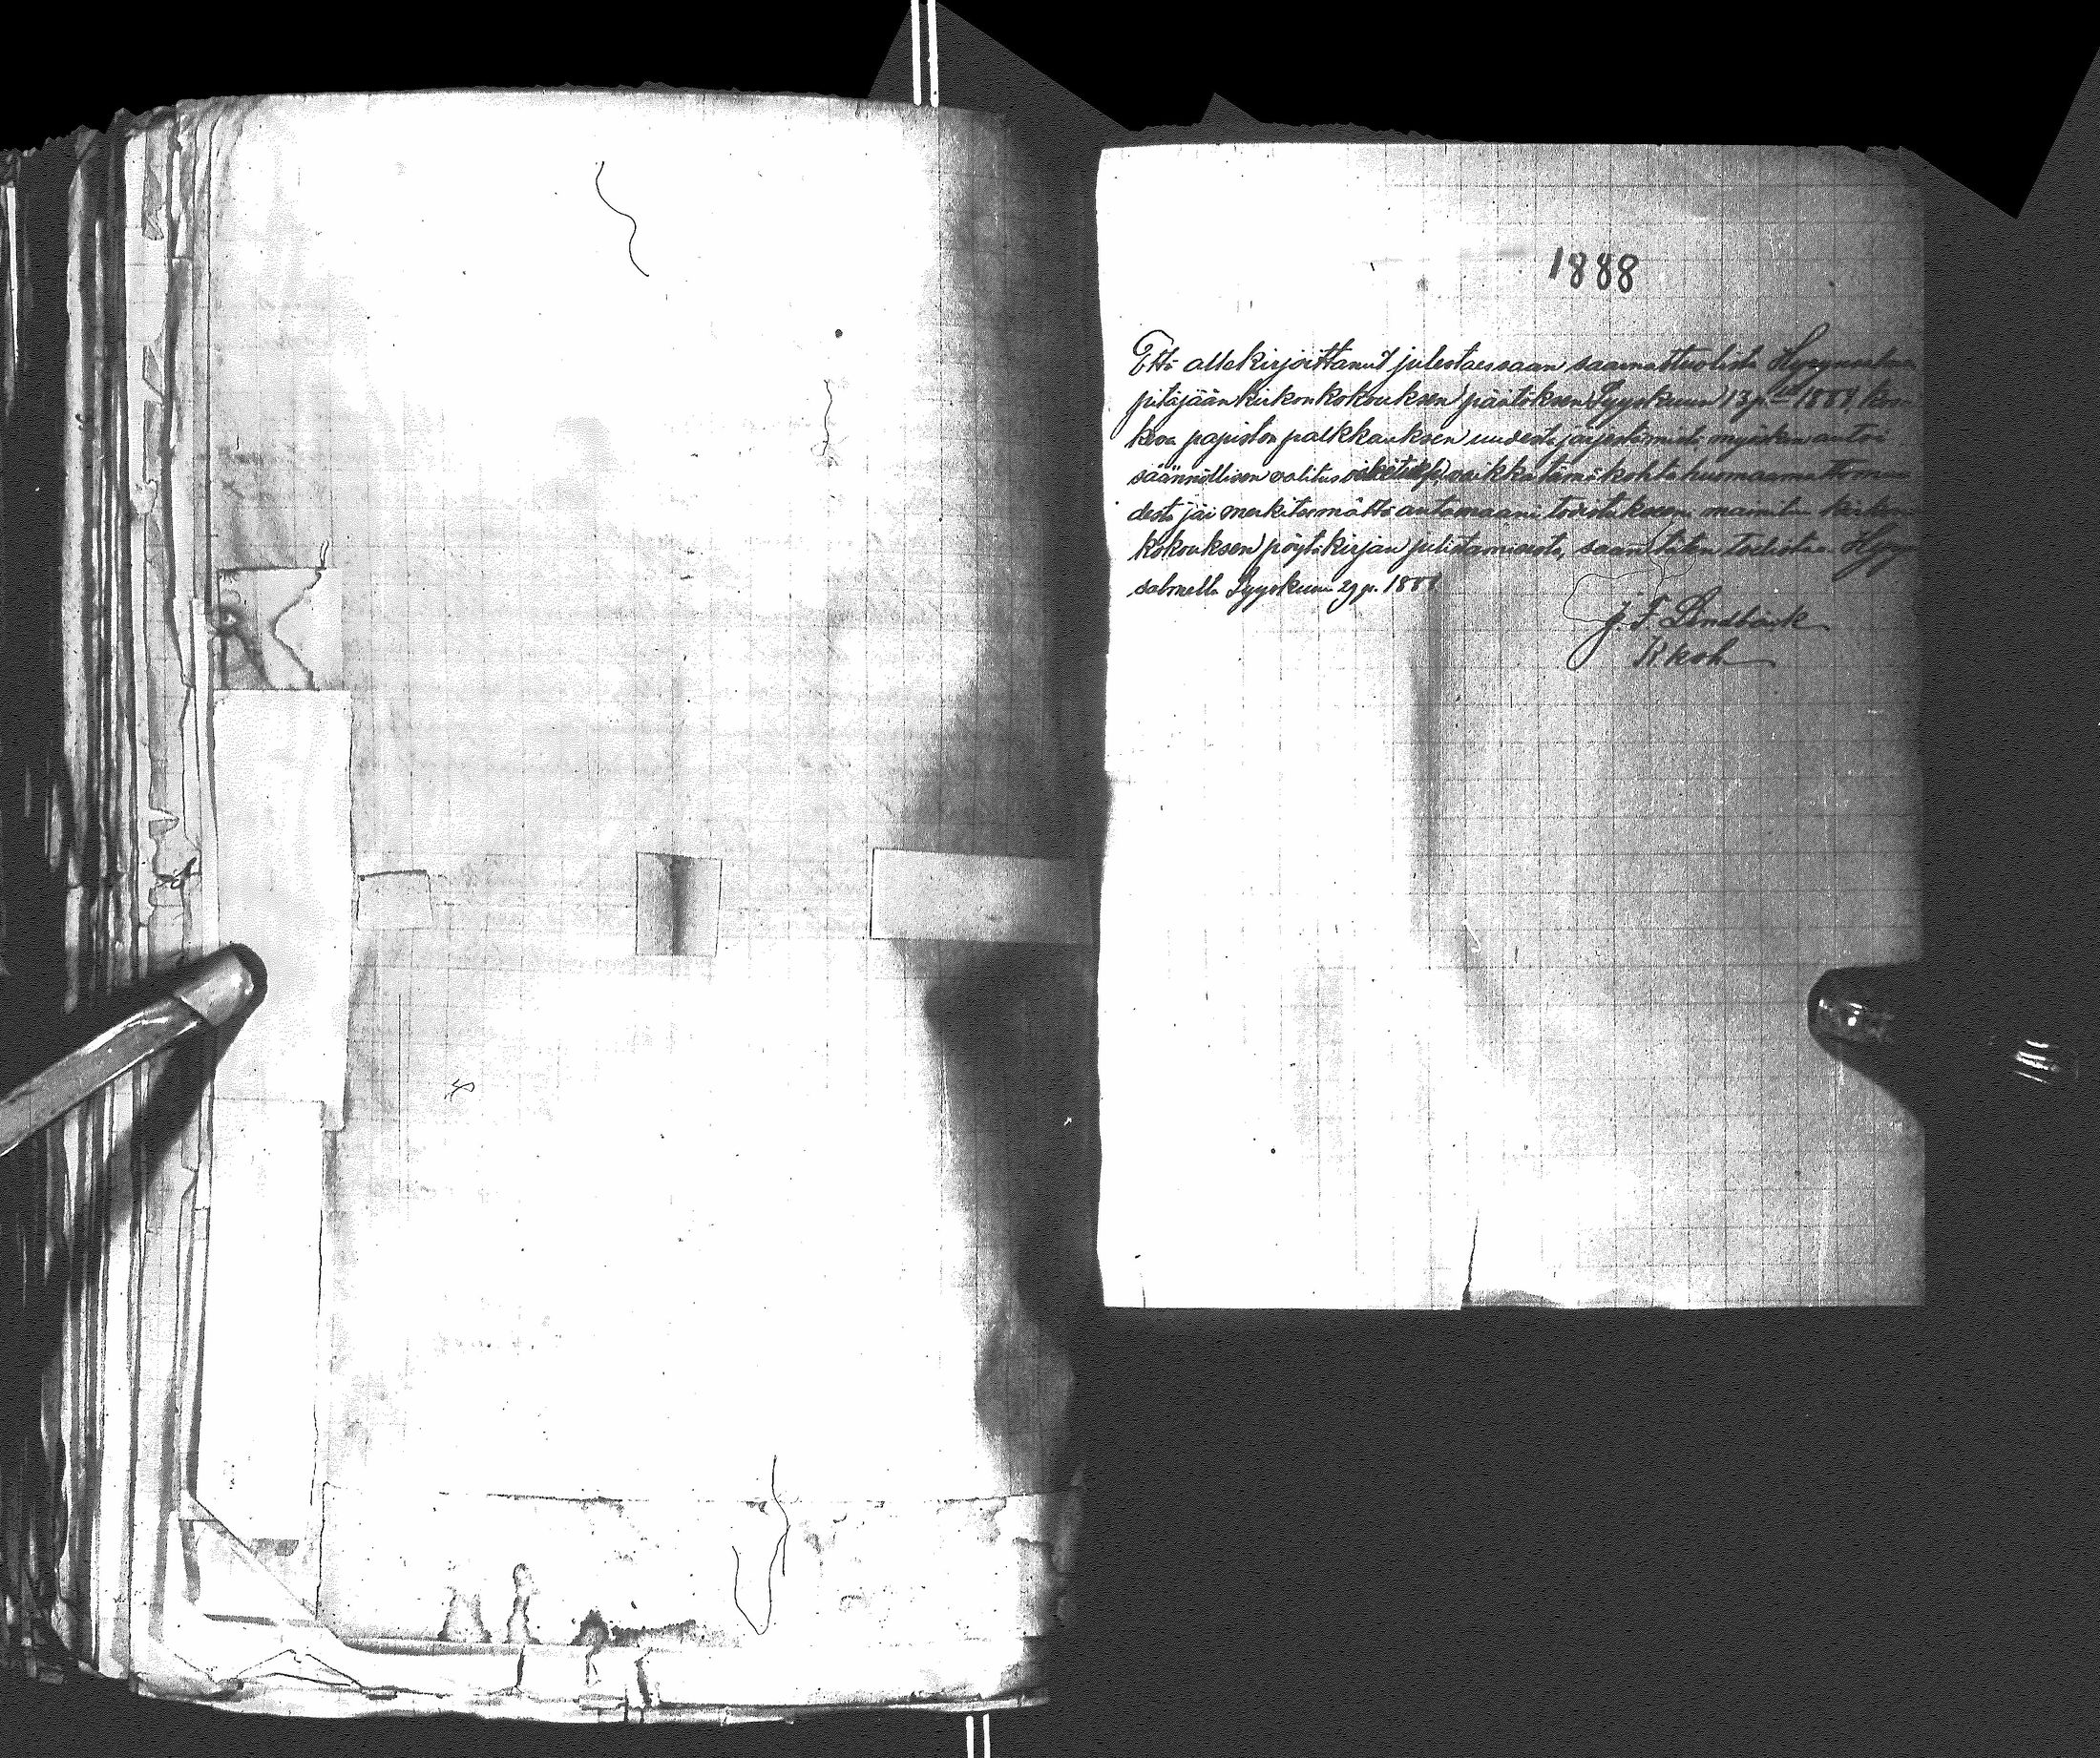 1888
Että allekirjoittanut julistaessaan saamattuolista
pitäjään kirkonkokouksen päätöksen Syyskuun 13 p. 1888, kos-
keva papiston palkkauksen uudesta järjestämistä myöskin antoi
säännöllisen valitus vaikka tämä kohta huomaamattomuu-
desta jäi merkitsemättä antamaani todistukseen mainitun kirkon-
kokouksen pöytäkirjan julistamisesta, saan täten todistaa. Hyryn-
salmella Syyskuun 29 p. 1888
J. F. Lindbäck
Kkoh